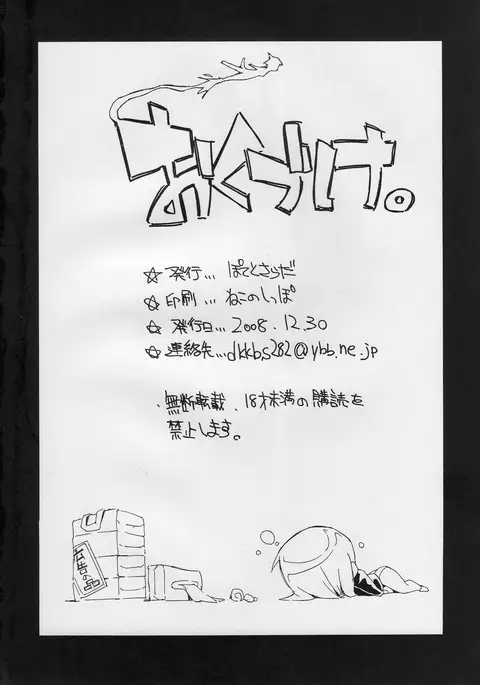 おくづけ。
☆発行…ぽてとさらだ
☆印刷…ねこのしっぽ
☆発行日…2008.12.30
☆連絡先…dkkbs282@ybb.ne.jp
・無断転載、18才未満の購読を
禁止します。